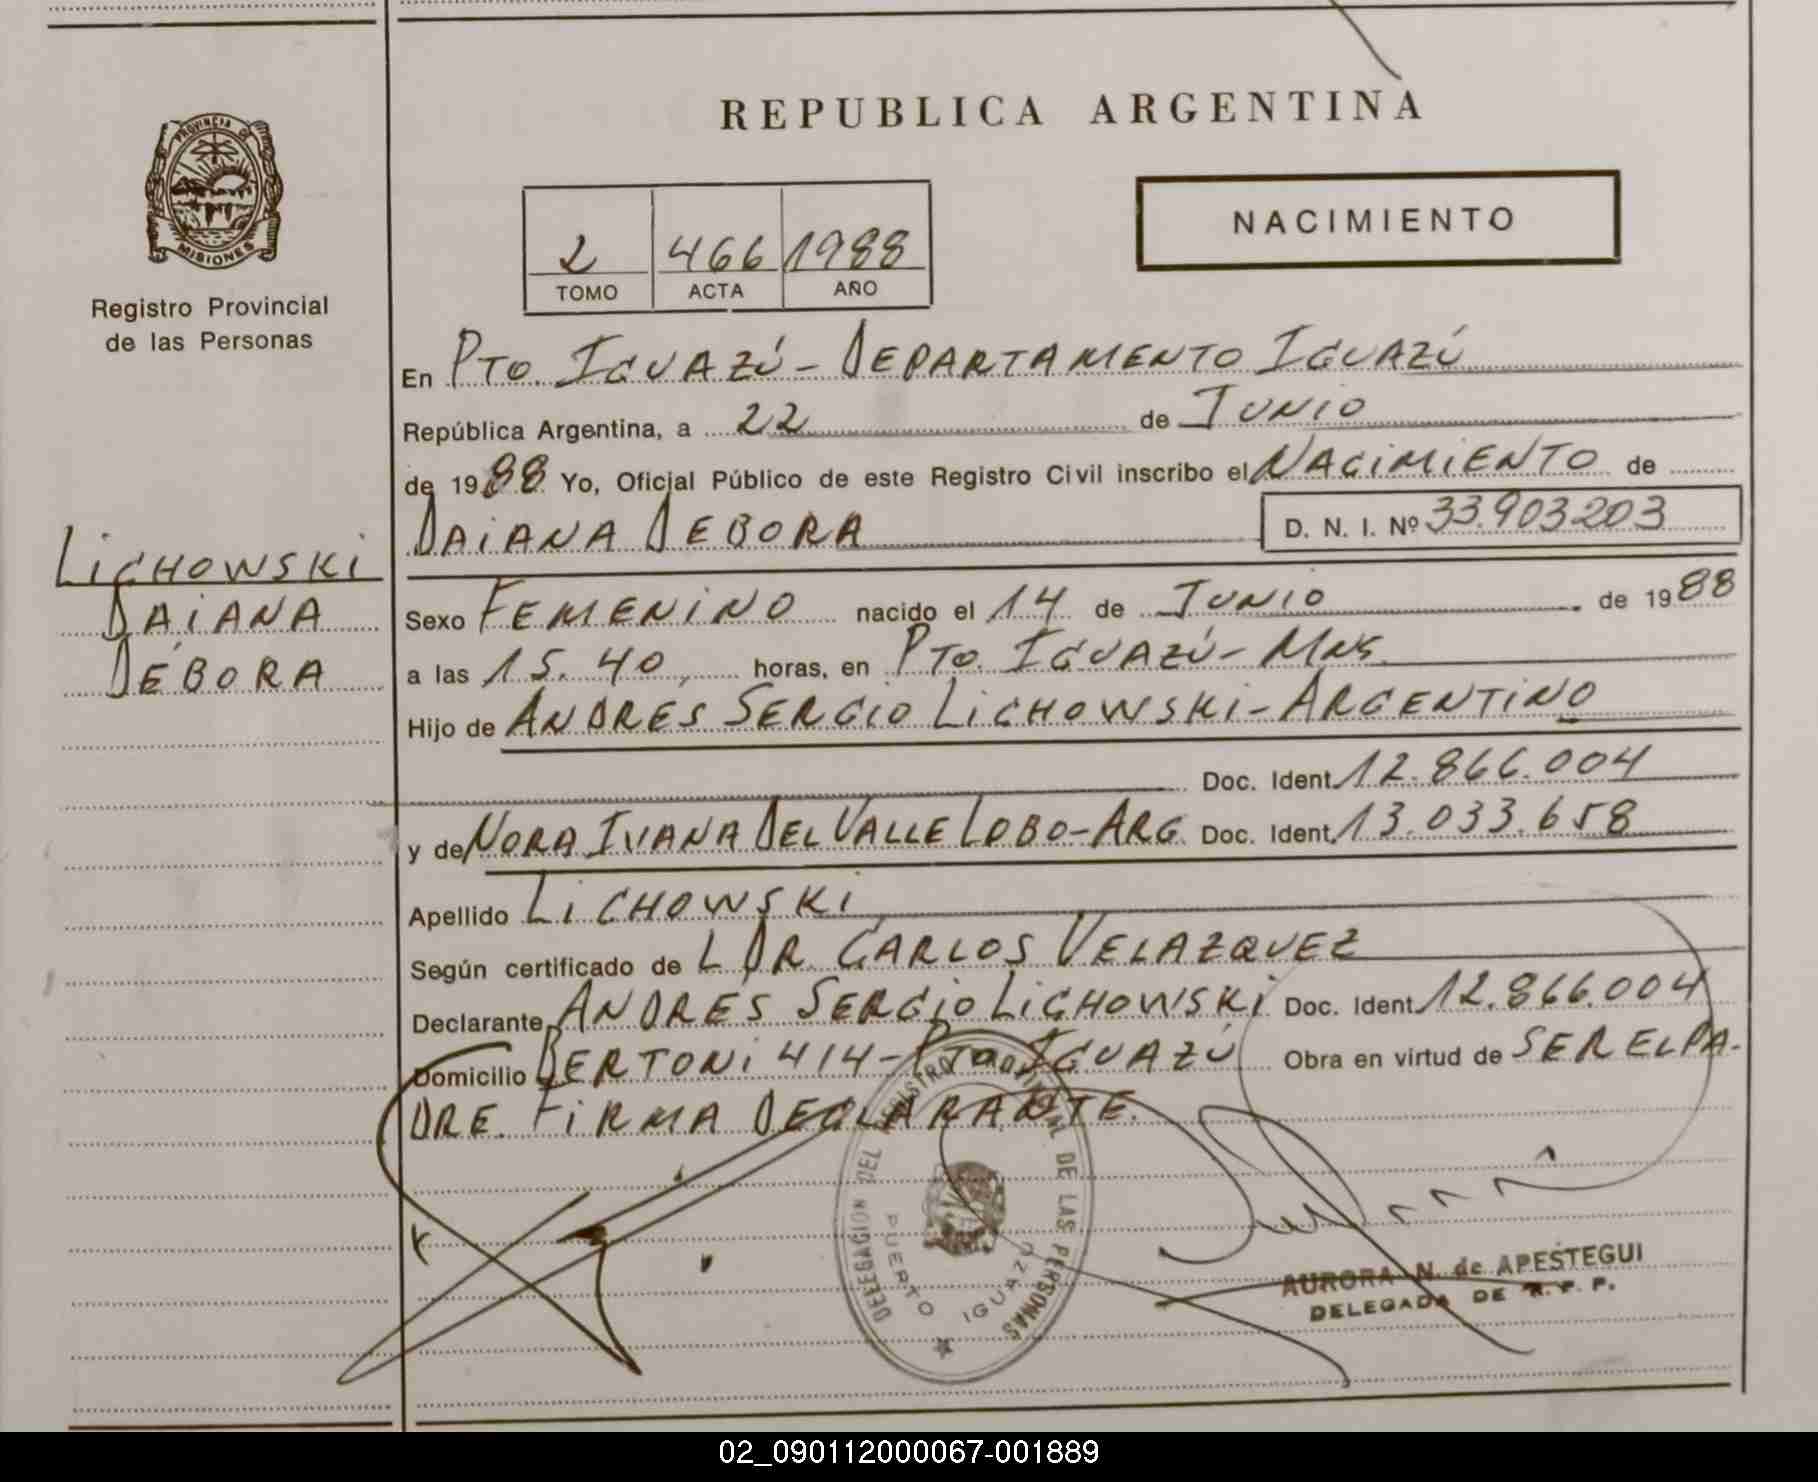 PROVINCIA DE
MISIONES
Registro Provincial
de las Personas
LICHOWSKI
DAIANA
DÉBORA
REPUBLICA ARGENTINA
2 466 1988
TOMO ACTA AÑO
NACIMIENTO
En PTO. IGUAZÚ - DEPARTAMENTO IGUAZÚ
República Argentina, a 22 de JUNIO
de 1988 Yo, Oficial Público de este Registro Civil inscribo el NACIMIENTO de
DAIANA DEBORA D. N. I. Nº 33.903203
Sexo FEMENINO nacido el 14 de JUNIO de 1988
a las 15.40 horas, en PTO. IGUAZÚ - MNS.
Hijo de ANDRÉS SERGIO LICHOWSKI - ARGENTINO
Doc. Ident. 12.866.004
y de NORA IVANA DEL VALLE LOBO - ARG. Doc. Ident. 13.033.658
Apellido LICHOWSKI
Según certificado de L DR. CARLOS VELAZQUEZ
Declarante ANDRÉS SERGIO LICHOWSKI Doc. Ident. 12.866.004
Domicilio BERTONI 414 - PTO. IGUAZÚ Obra en virtud de SER EL PA-
DRE. FIRMA DECLARANTE.
DELEGACION DEL REGISTRO PROVINCIAL DE LAS PERSONAS
PUERTO IGUAZU
AURORA N. de APESTEGUI
DELEGADA DE R. P. P.
02_090112000067-001889